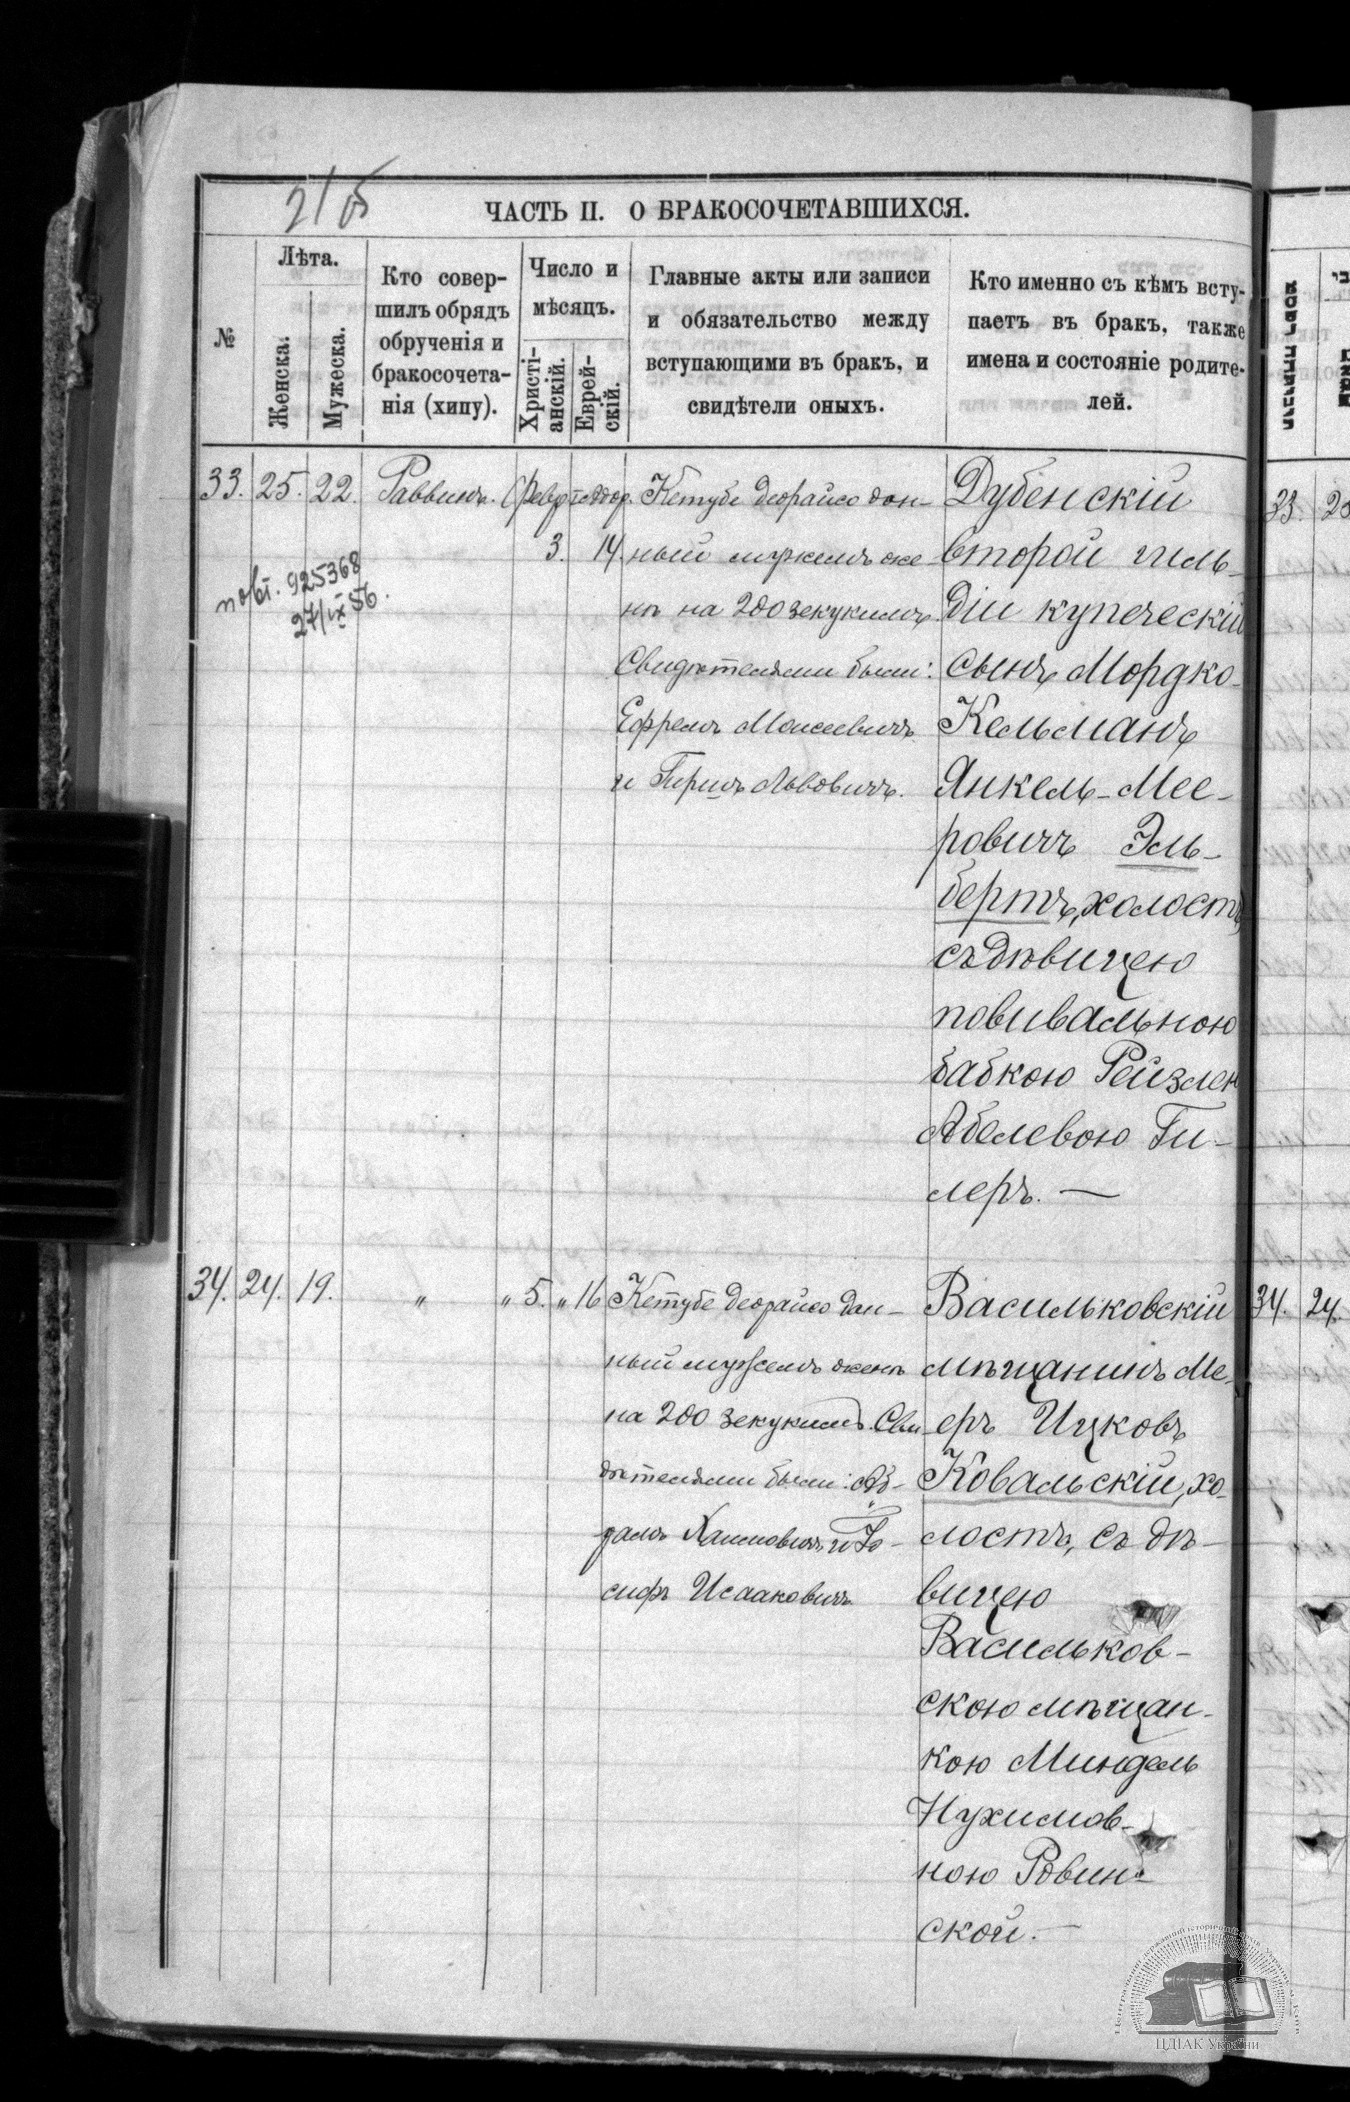 215
ЧАСТЬ II. О БРАКОСОЧЕТАВШИХСЯ.
№
Лѣта.
Женска.
Мужеска.
Кто совер-
шилъ обрядъ
обрученія и
бракосочета-
нія (хипу).
Число и
мѣсяцъ.
Христі-
анскій.
Еврей-
скій.
Главные акты или записи
и обязательство между
вступающими въ бракъ, и
свидѣтели оныхъ.
Кто именно съ кѣмъ всту-
паетъ въ бракъ, также
имена и состояніе родите-
лей.
33. 25. 22. Раввинъ. Февр
3. 14.
повт. 925368
27/IX 56.
Кетубе деорайсо дан-
ный мужемъ же-
нѣ на 200 зекукимъ
Свидѣтелями были:
Ефремъ Моисеевичъ
и Гершъ Львовичъ.
Дубенскій
второй гиль-
діи купеческій
сынъ Мордко-
Кельманъ
Янкель-Мее-
ровичъ Эль-
бертъ, холостъ,
съ дѣвицею
повивальною
бабкою Рейзлею
Абелевою Ги-
леръ. —
34. 24. 19. " " 5. " 16
Кетубе деорайсо дан-
ный мужемъ женѣ
на 200 зекукимъ. Сви-
дѣтелями были: Аб-
рамъ Хаимовичъ и Іо-
сифъ Исааковичъ
Васильковскій
мѣщанинъ Ме-
еръ Ицковъ
Ковальскій, хо-
лостъ, съ дѣ-
вицею
Васильков-
скою мѣщан-
кою Миндель
Нухимов-
ною Ровин-
ской. —
33.
34. 24.
ЦДІАК України